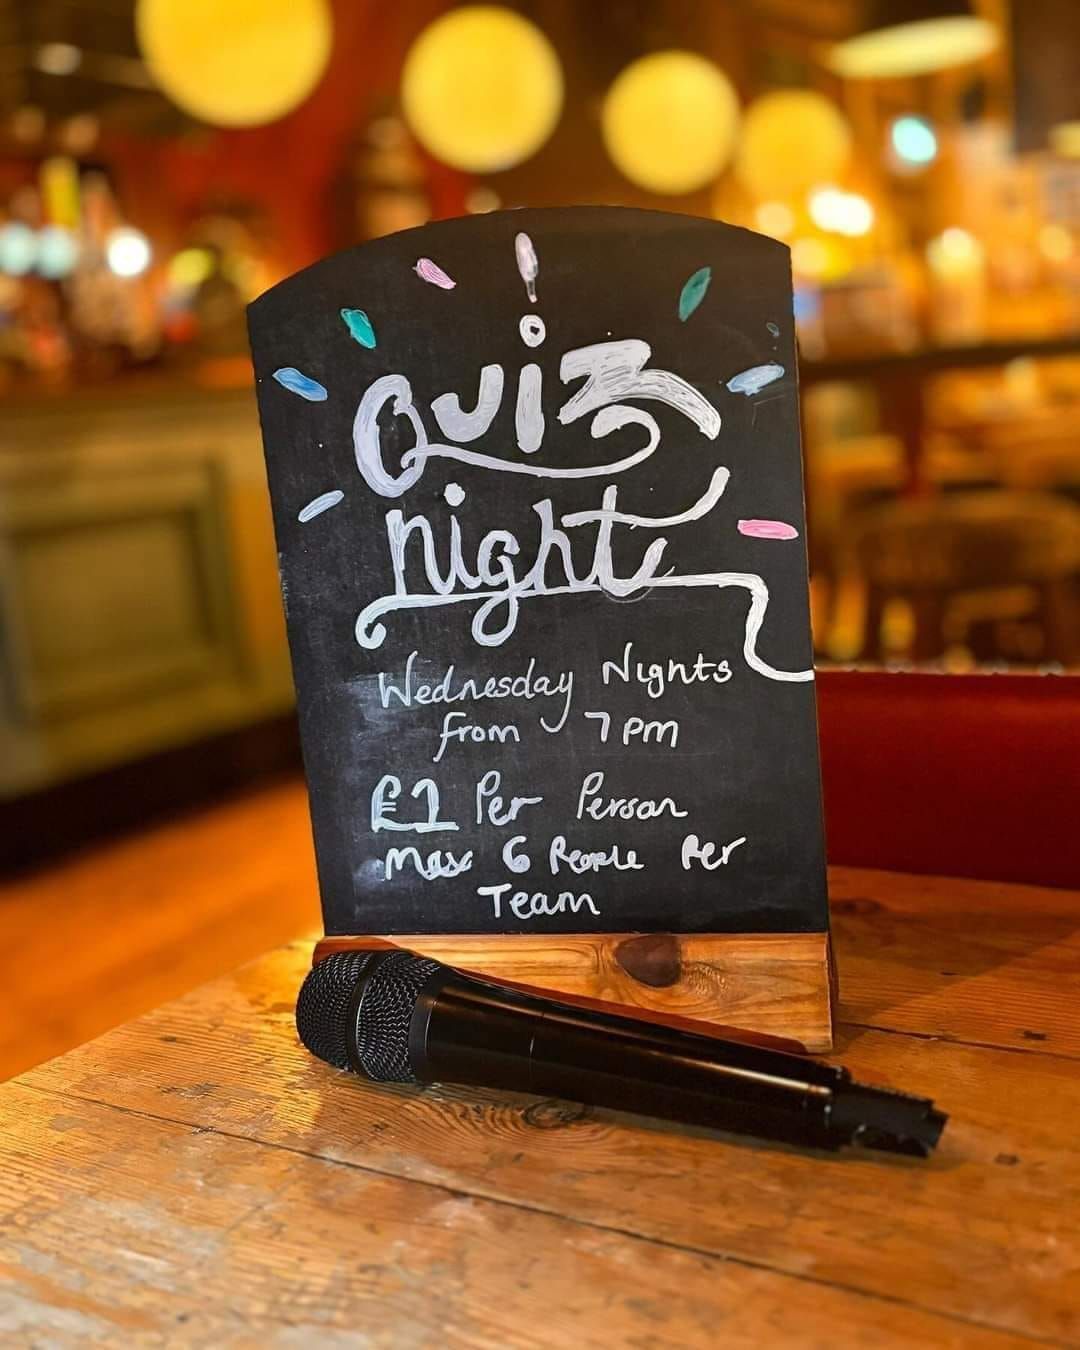 Quiz
night
Wednesday Nights
from 7pm
£1 Per Person
Max 6 People Per
Team